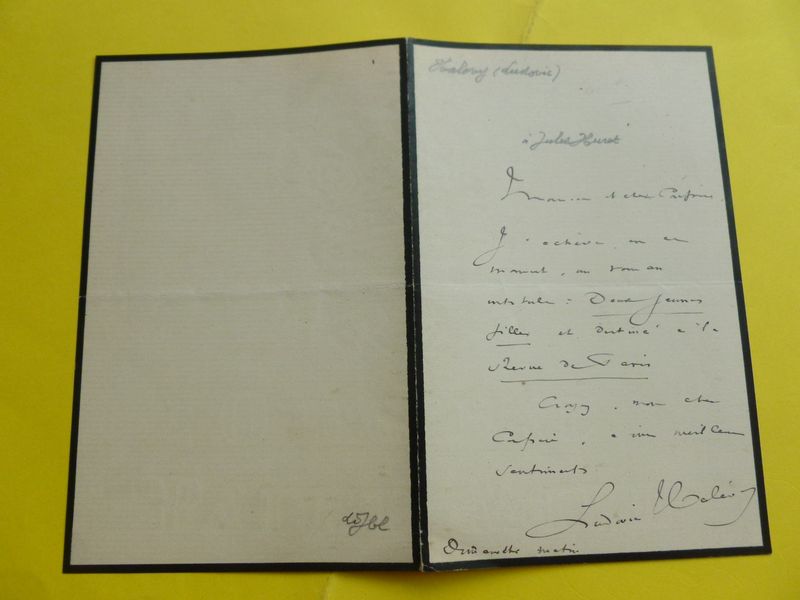 Halévy (Ludovic)
à Jules Huret
Monsieur et cher Confrère,
J'achève, en ce
moment, un roman
intitulé : Deux Jeunes
filles et destiné à la
Revue de Paris
Croyez, mon cher
Confrère, à mes meilleurs
sentiments
Ludovic Halévy
Dimanche matin